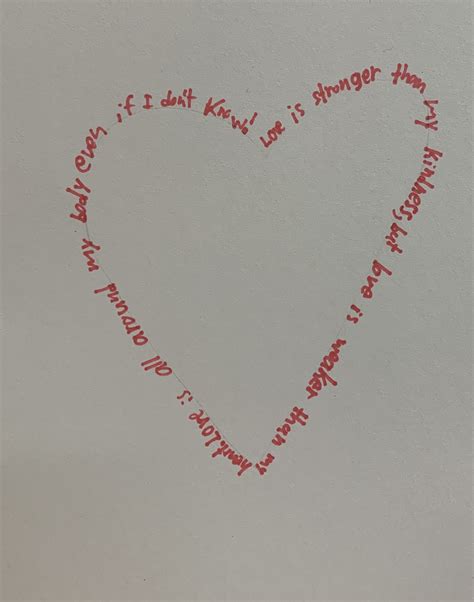 love is stronger than my kindness, but love is weaker than my heart. Love is all around my body even if I don't know!